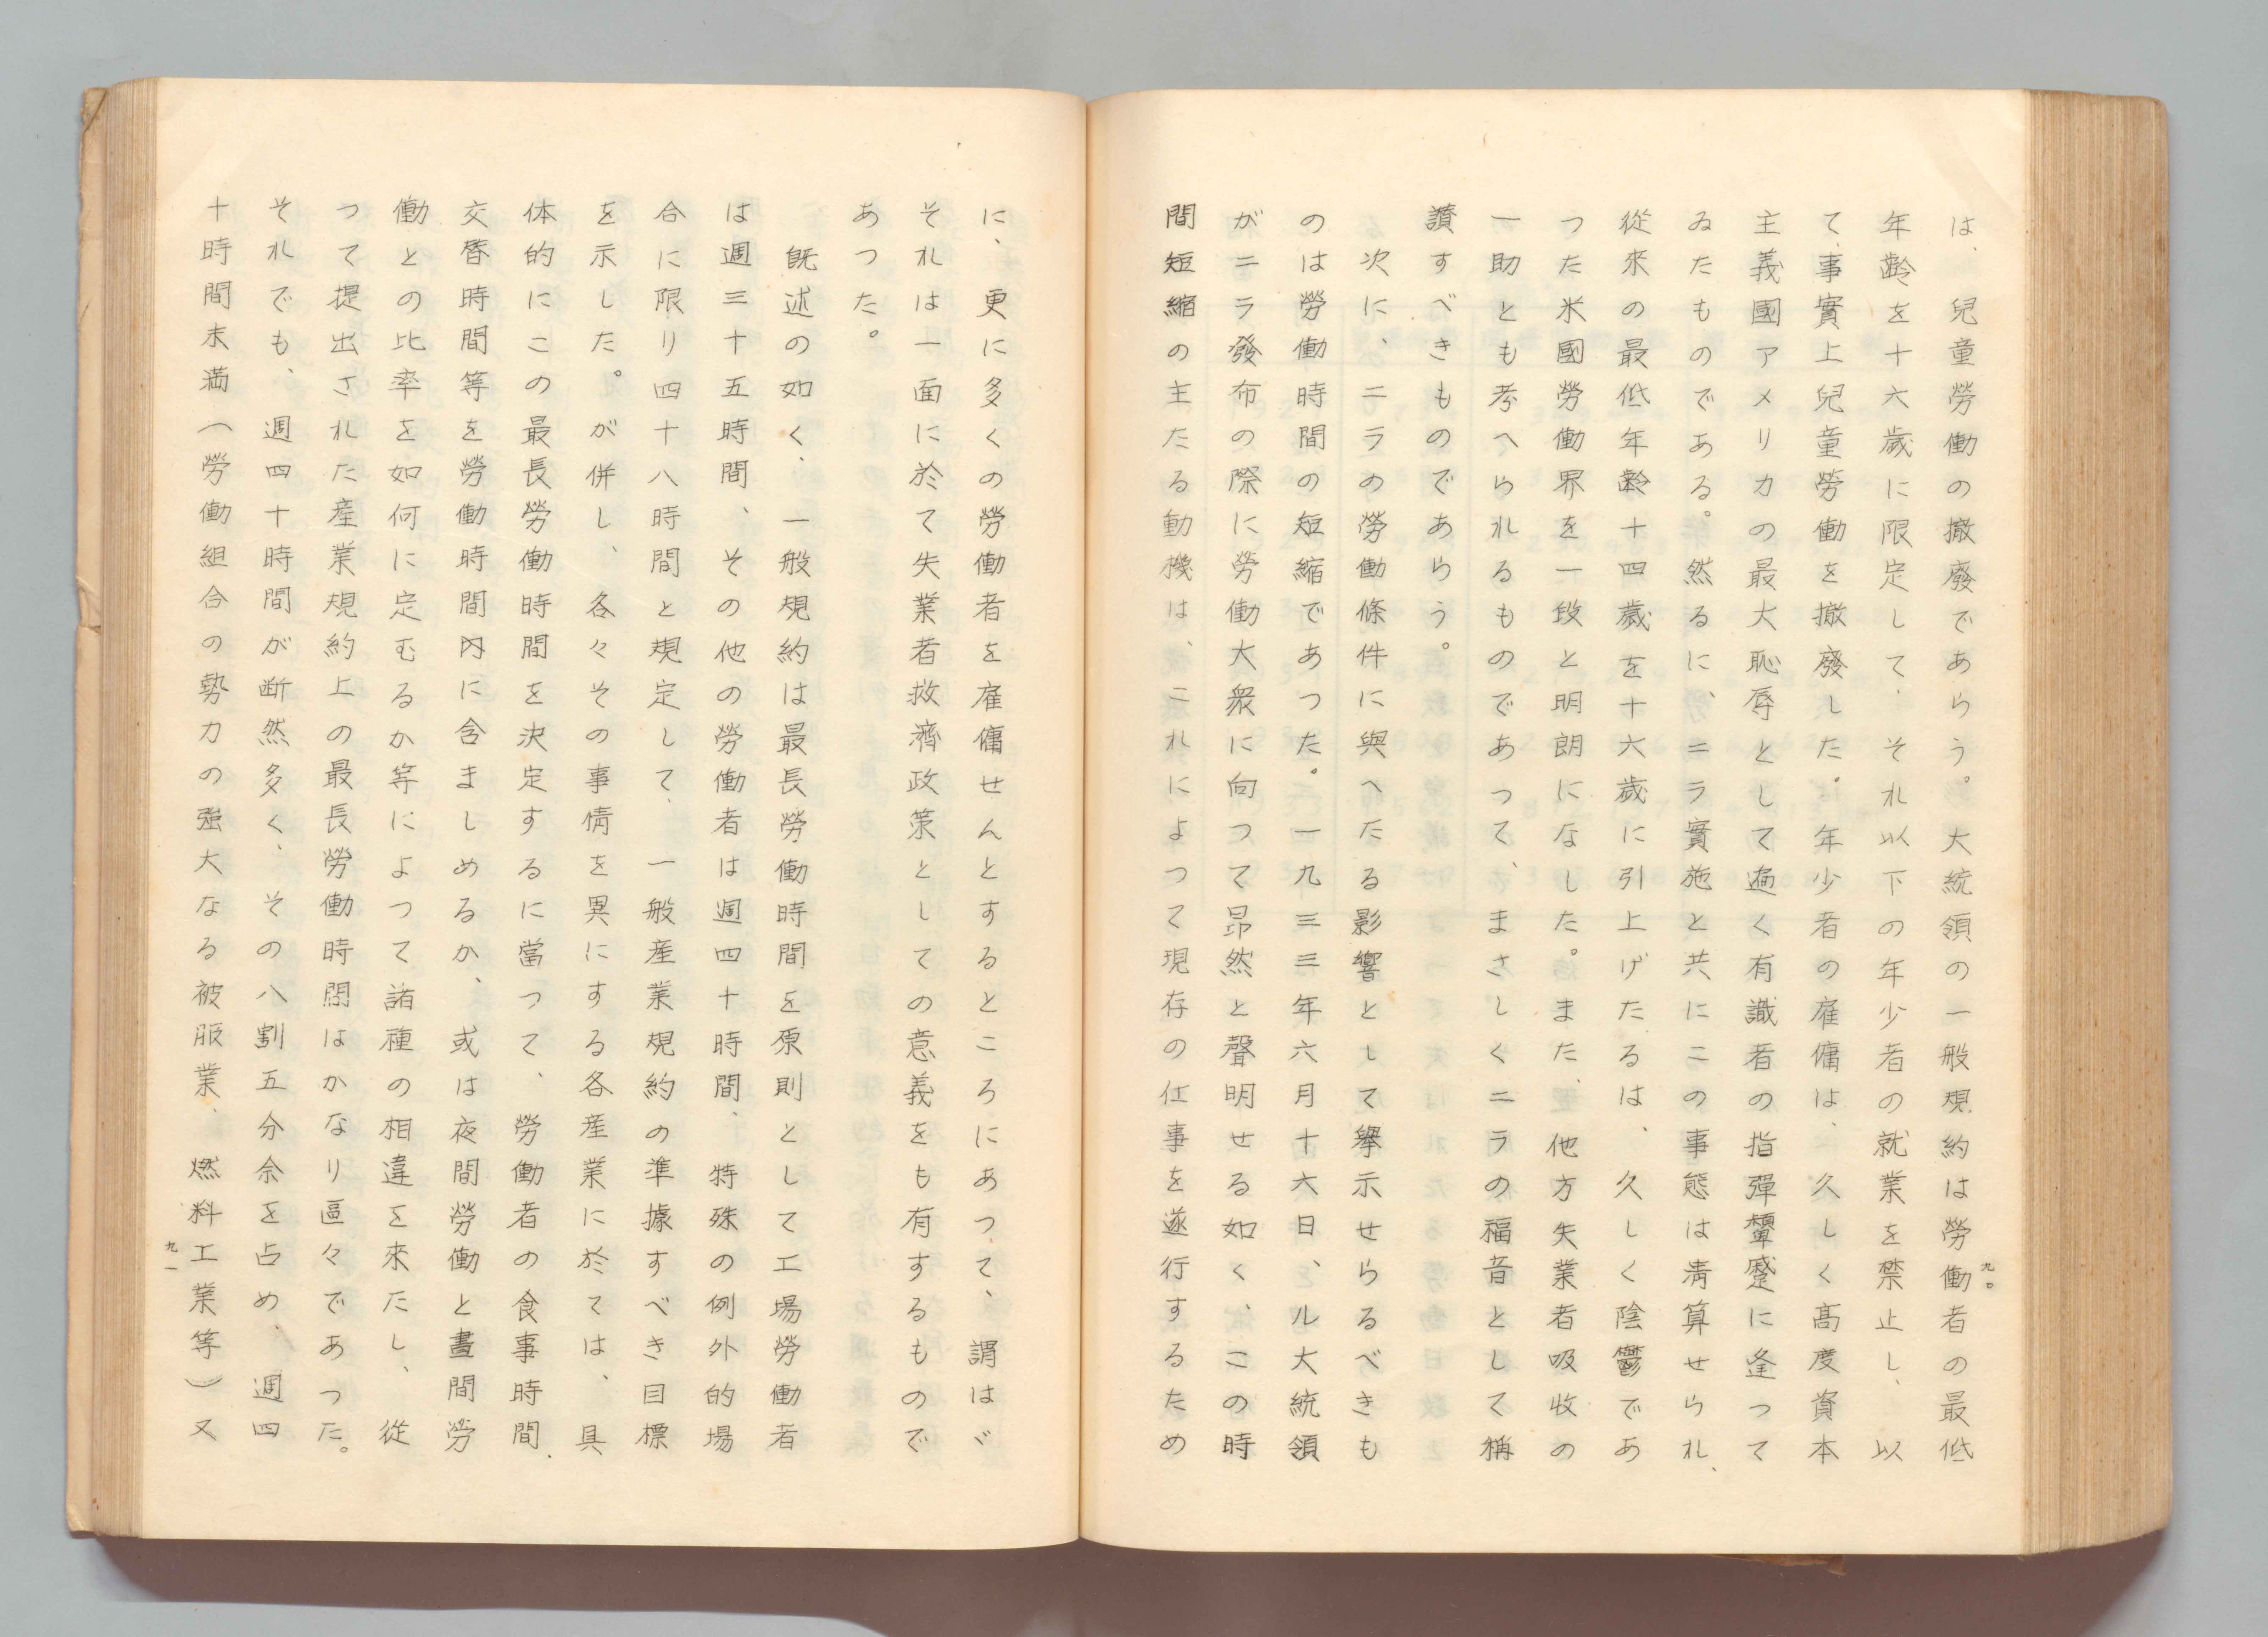 は、兒童勞働の撤廢であらう。大統領の一般規約は勞働者の最低
年齡を十六歲に限定して、それ以下の年少者の就業を禁止し、以
て事實上兒童勞働を撤廢した。年少者の雇傭は、久しく高度資本
主義國アメリカの最大恥辱として遍く有識者の指彈顰蹙に逢つて
ゐたものである。然るに、ニラ實施と共にこの事態は淸算せられ、
從來の最低年齡十四歲を十六歲に引上げたるは、久しく陰鬱であ
つた米國勞働界を一段と明朗になした。また、他方失業者吸收の
一助とも考へられるものであつて、まさしくニラの福音として稱
讃すべきものであらう。
次に、ニラの勞働條件に與へたる影響として擧示せらるべきも
のは勞働時間の短縮であつた。一九三三年六月十六日、ル大統領
がニラ發布の際に勞働大衆に向つて昂然と聲明せる如く、この時
間短縮の主たる動機は、これによつて現存の仕事を遂行するため
九〇
に、更に多くの勞働者を雇傭せんとするところにあつて、謂はゞ
それは一面に於て失業者救濟政策としての意義をも有するもので
あつた。
既述の如く、一般規約は最長勞働時間を原則として工場勞働者
は週三十五時間、その他の勞働者は週四十時間、特殊の例外的場
合に限り四十八時間と規定して、一般産業規約の準據すべき目標
を示した。が併し、各々その事情を異にする各産業に於ては、具
体的にこの最長勞働時間を決定するに當つて、勞働者の食事時間、
交替時間等を勞働時間内に含ましめるか、或は夜間勞働と晝間勞
働との比率を如何に定むるか等によつて諸種の相違を來たし、從
つて提出された産業規約上の最長勞働時間はかなり區々であつた。
それでも、週四十時間が斷然多く、その八割五分余を占め、週四
十時間末満（勞働組合の勢力の强大なる被服業、燃料工業等）又
九一